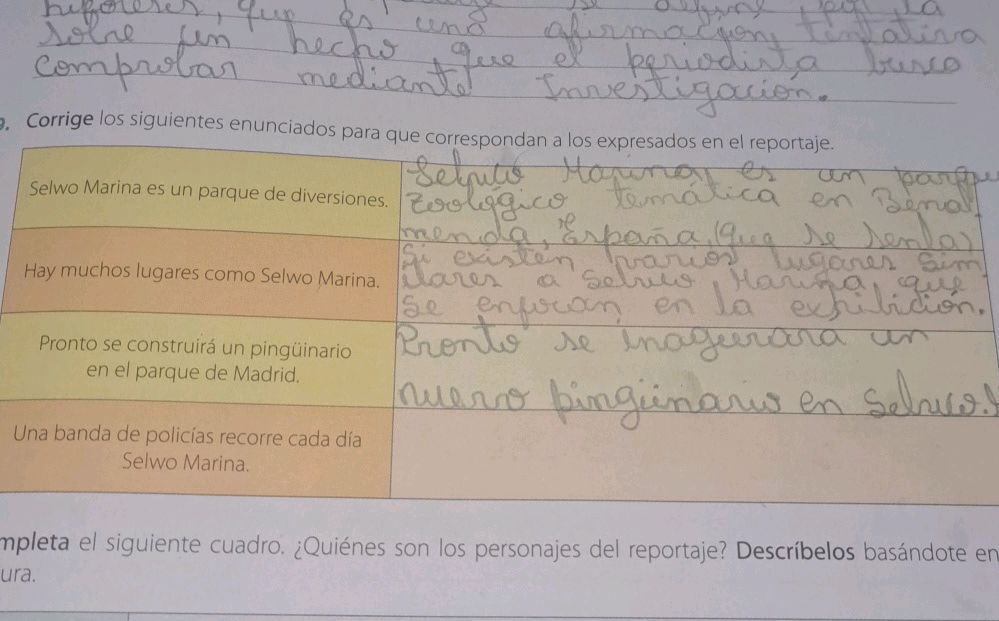 hipótesis, que es una se define por la
sobre un hecho que el periodista busca
afirmación, tentativa
comprobar mediante Investigación.
Corrige los siguientes enunciados para que correspondan a los expresados en el reportaje.
Selwo Marina es un parque de diversiones.
Selwo Marina, es un parque
zoológico temática en Benal
menda, España, que se
Hay muchos lugares como Selwo Marina.
Si existen varios lugares sim
ilares a Selwo Marina, que
se enfocan en la exhibición.
Pronto se construirá un pingüinario
en el parque de Madrid.
Pronto se inagurara un
nuevo pingüinario en Selwo.
Una banda de policías recorre cada día
Selwo Marina.
mpleta el siguiente cuadro. ¿Quiénes son los personajes del reportaje? Descríbelos basándote en
ura.